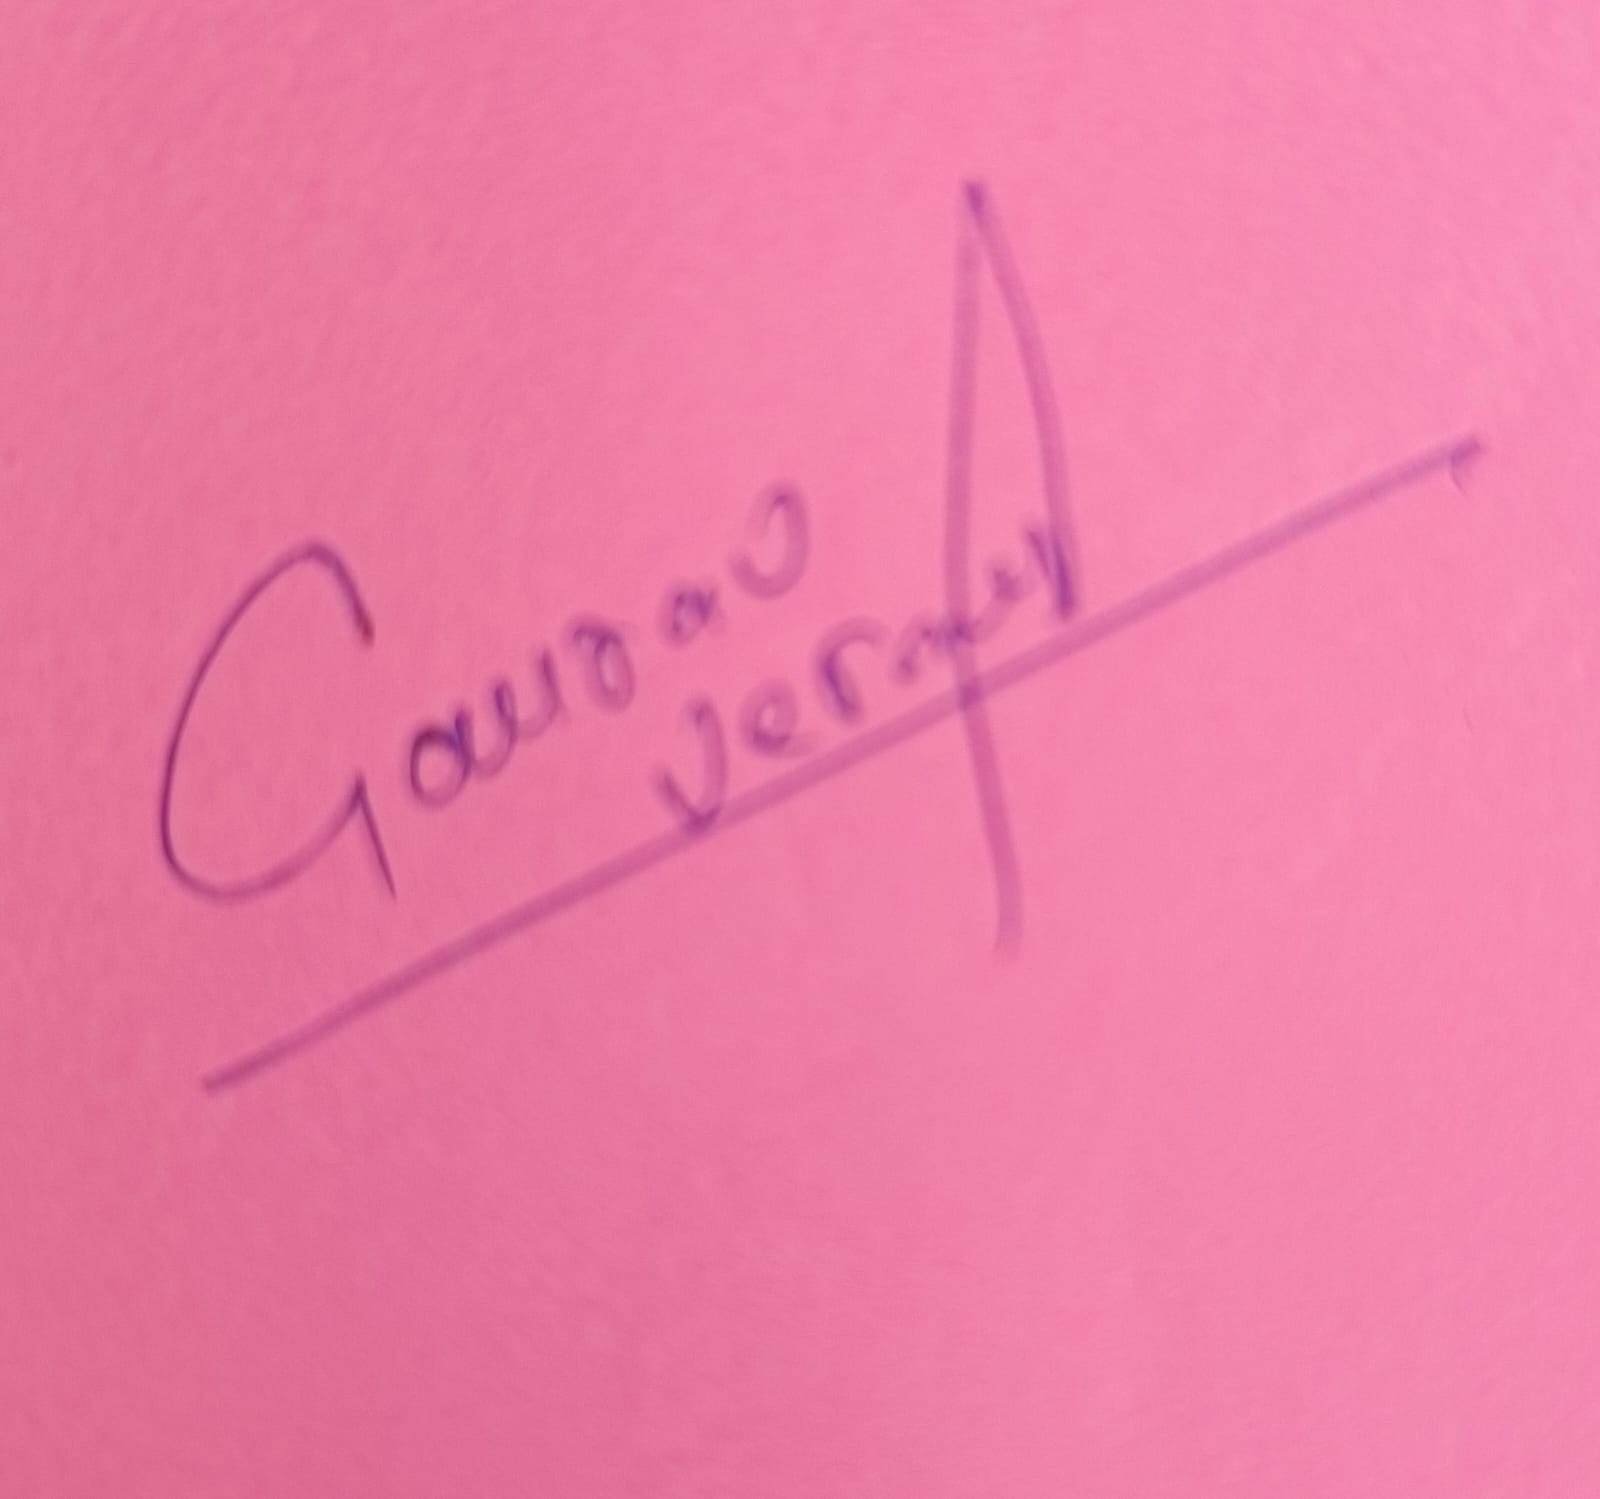 Gaurav
Verma